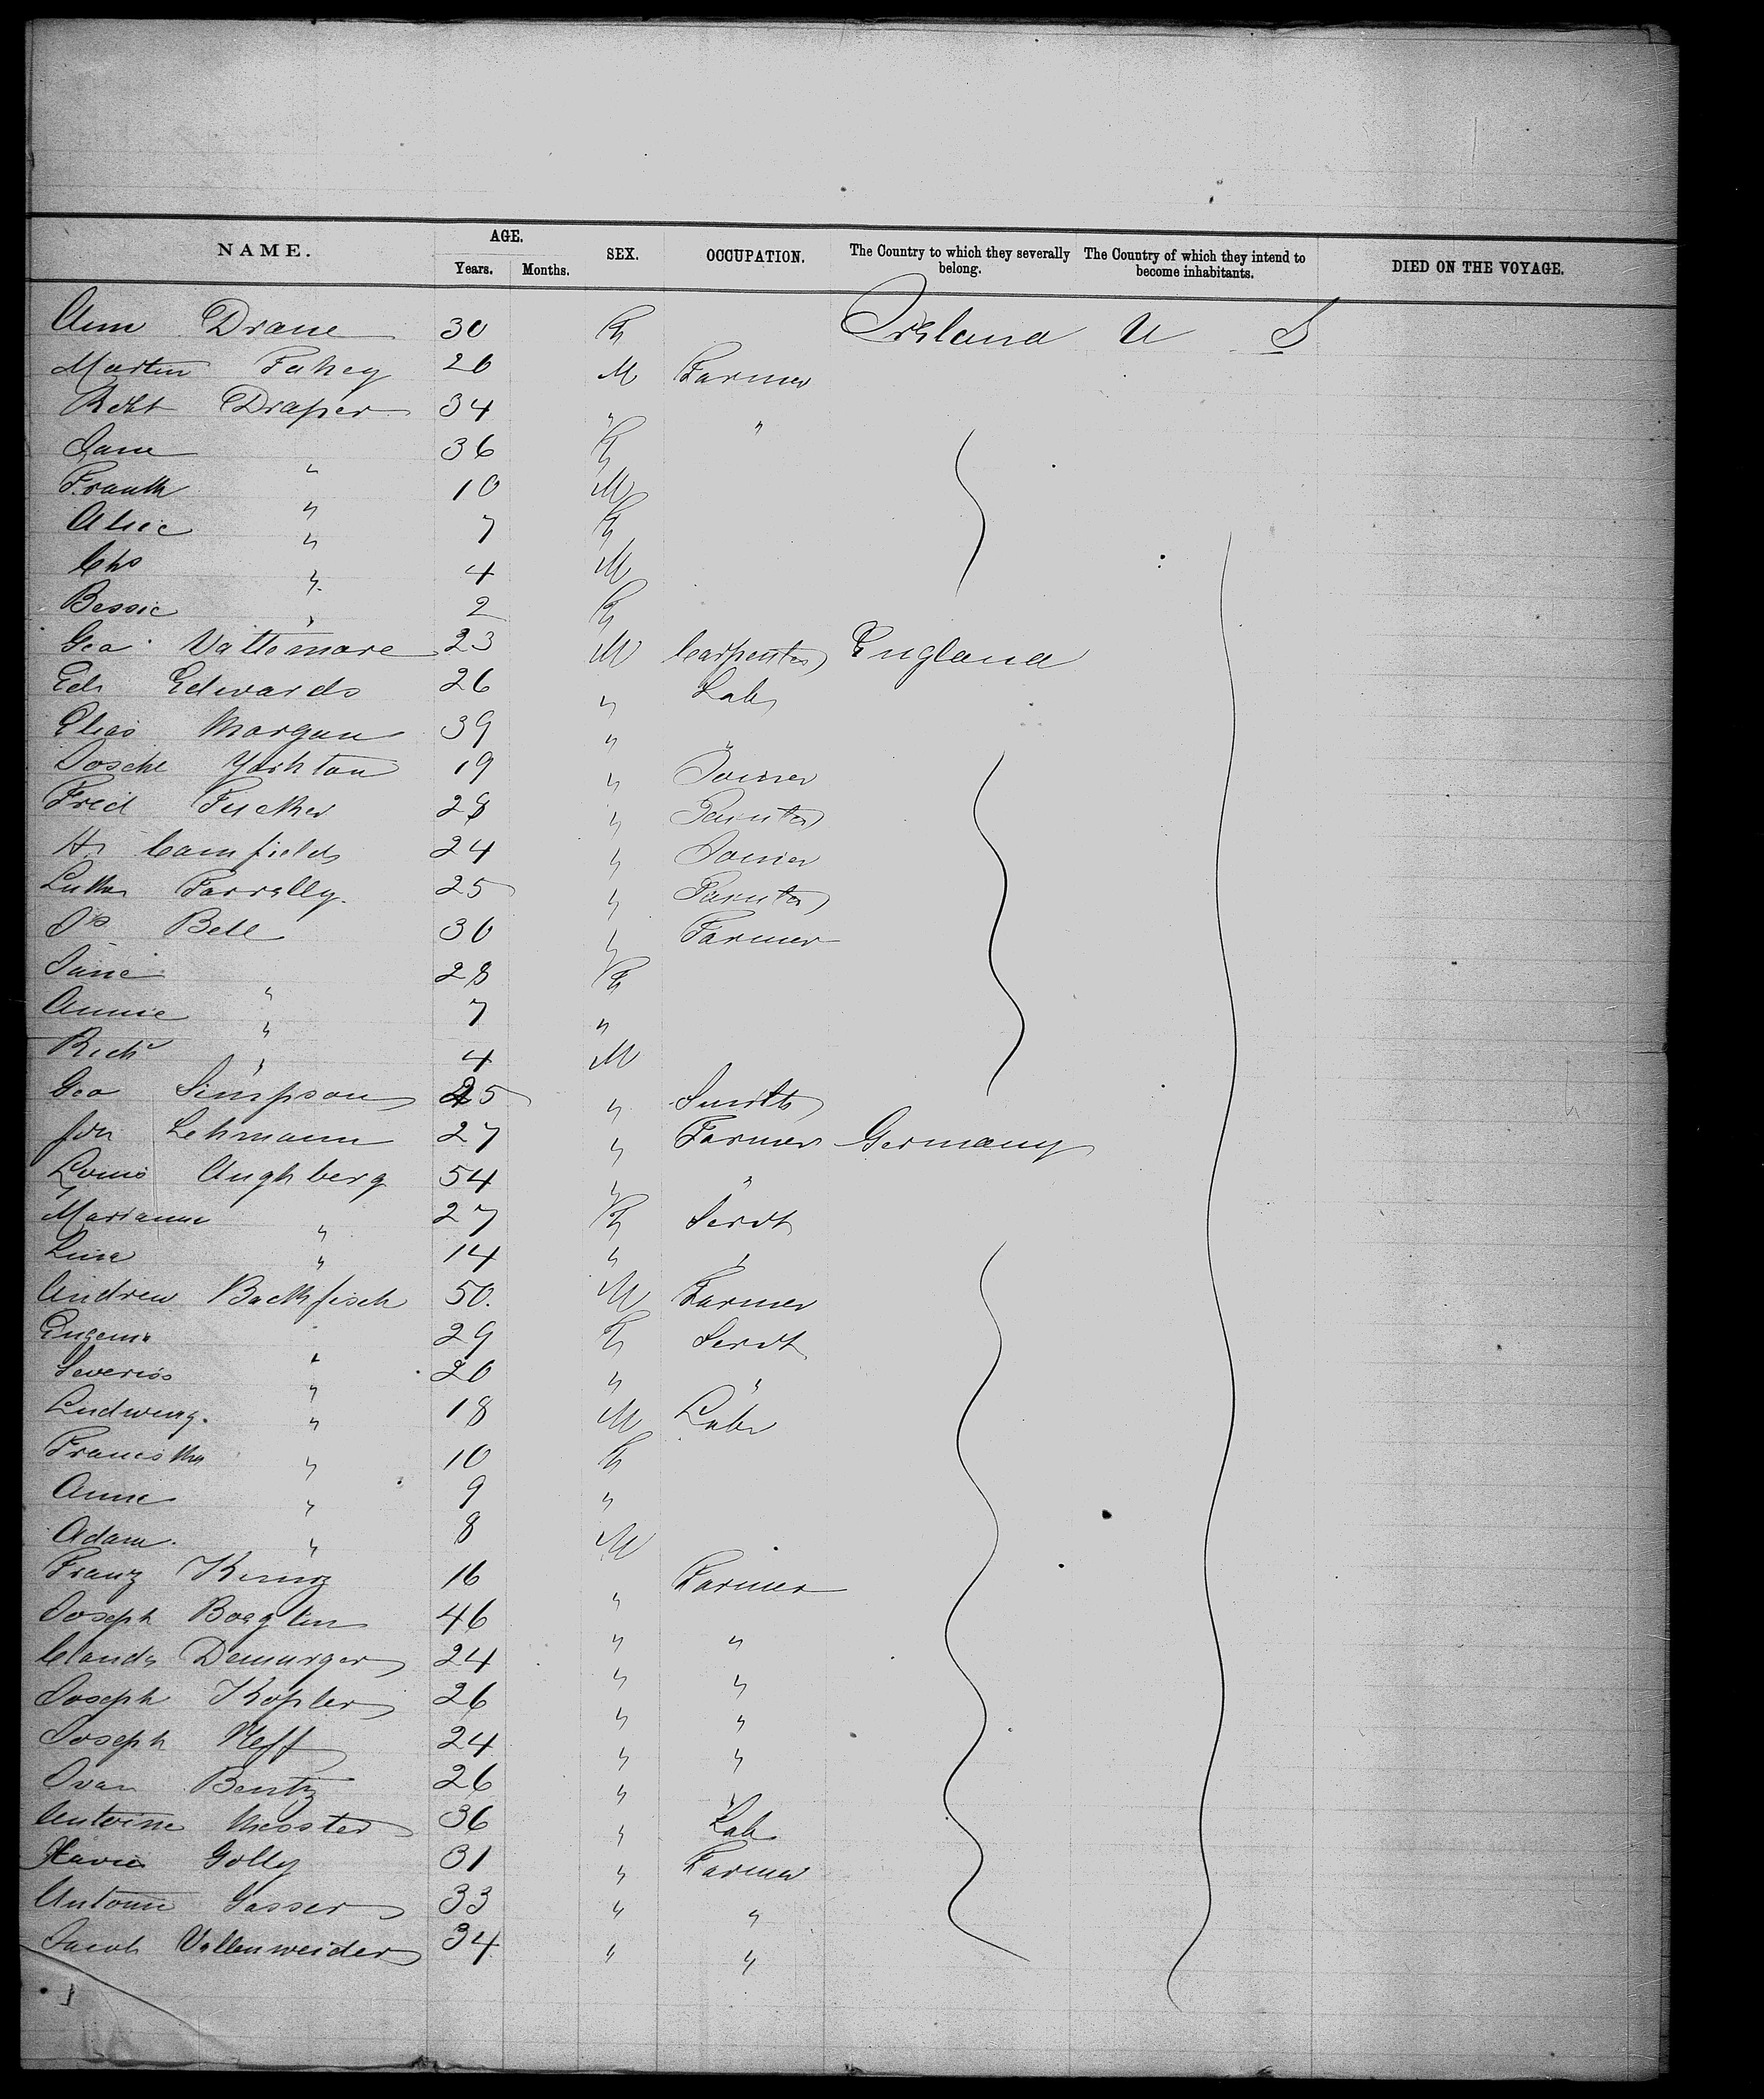 NAME. AGE. SEX. OCCUPATION. The Country to which they severally belong. The Country of which they intend to become inhabitants. DIED ON THE VOYAGE.
Years. Months.
Ann Drane 30 F Ireland U S
Martin Fahey 20 M Farmer
Robt Draper 34 " "
Jane " 36 F
Frank " 10 M
Alice " 7 F
Chs " 4 M
Bessie " 2 F
Geo Vattemare 23 M Carpenter England
Ed Edwards 26 " Lab
Elias Morgan 39 " "
Yorkton 19 " Joiner
Fred Tucker 28 " Painter
Hy Camfield 24 " Joiner
Luke Farrelly. 25 " Painter
Js Bell 30 " Farmer
Jane " 28 F
Annie " 7 "
Richd " 4 M
Geo Simpson 25 " Smith
Jon Lehmann 27 " Farmer Germany
Louis Aughberg 54 " "
Marianne " 27 F Servt
Lina " 14 " "
Andrew Backfisch 50. M Farmer
Eugenia " 29 F Servt
" 20 " "
Ludwig. " 18 M Labr
" 10 F
Anne " 9 "
Adam. " 8 M
Franz 16 " Farmer
Joseph Boeglin 46 " "
Claude Demurger 24 " "
Joseph Kopler 26 " "
Joseph Neff 24 " "
Bentz 26 " "
Antoine Messter 36 " Lab
Xavier Golly 31 " Farmer
Antoine Gasser 33 " "
Jacob Vollenweider 34 " "